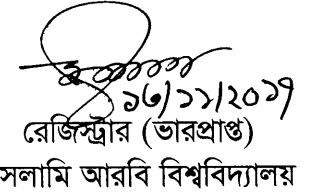 ১৬/১১/২০১৭
রেজিস্ট্রার (ভারপ্রাপ্ত)
সলামি আরবি বিশ্ববিদ্যালয়